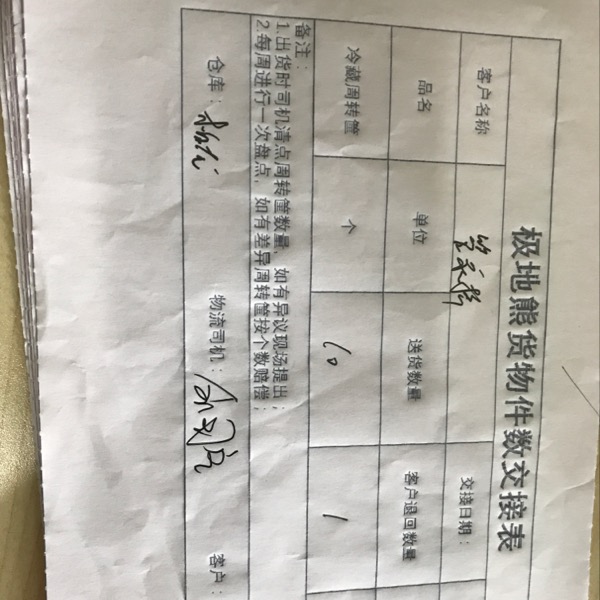 极地熊货物件数交接表
客户名称 交接日期：
品名 单位 送货数量 客户退回数量
冷藏周转筐 个 10 1
备注：
1.出货时司机清点周转筐数量，如有异议现场提出；
2.每周进行一次盘点，如有差异周转筐按个数赔偿；
仓库： 物流司机： 客户：